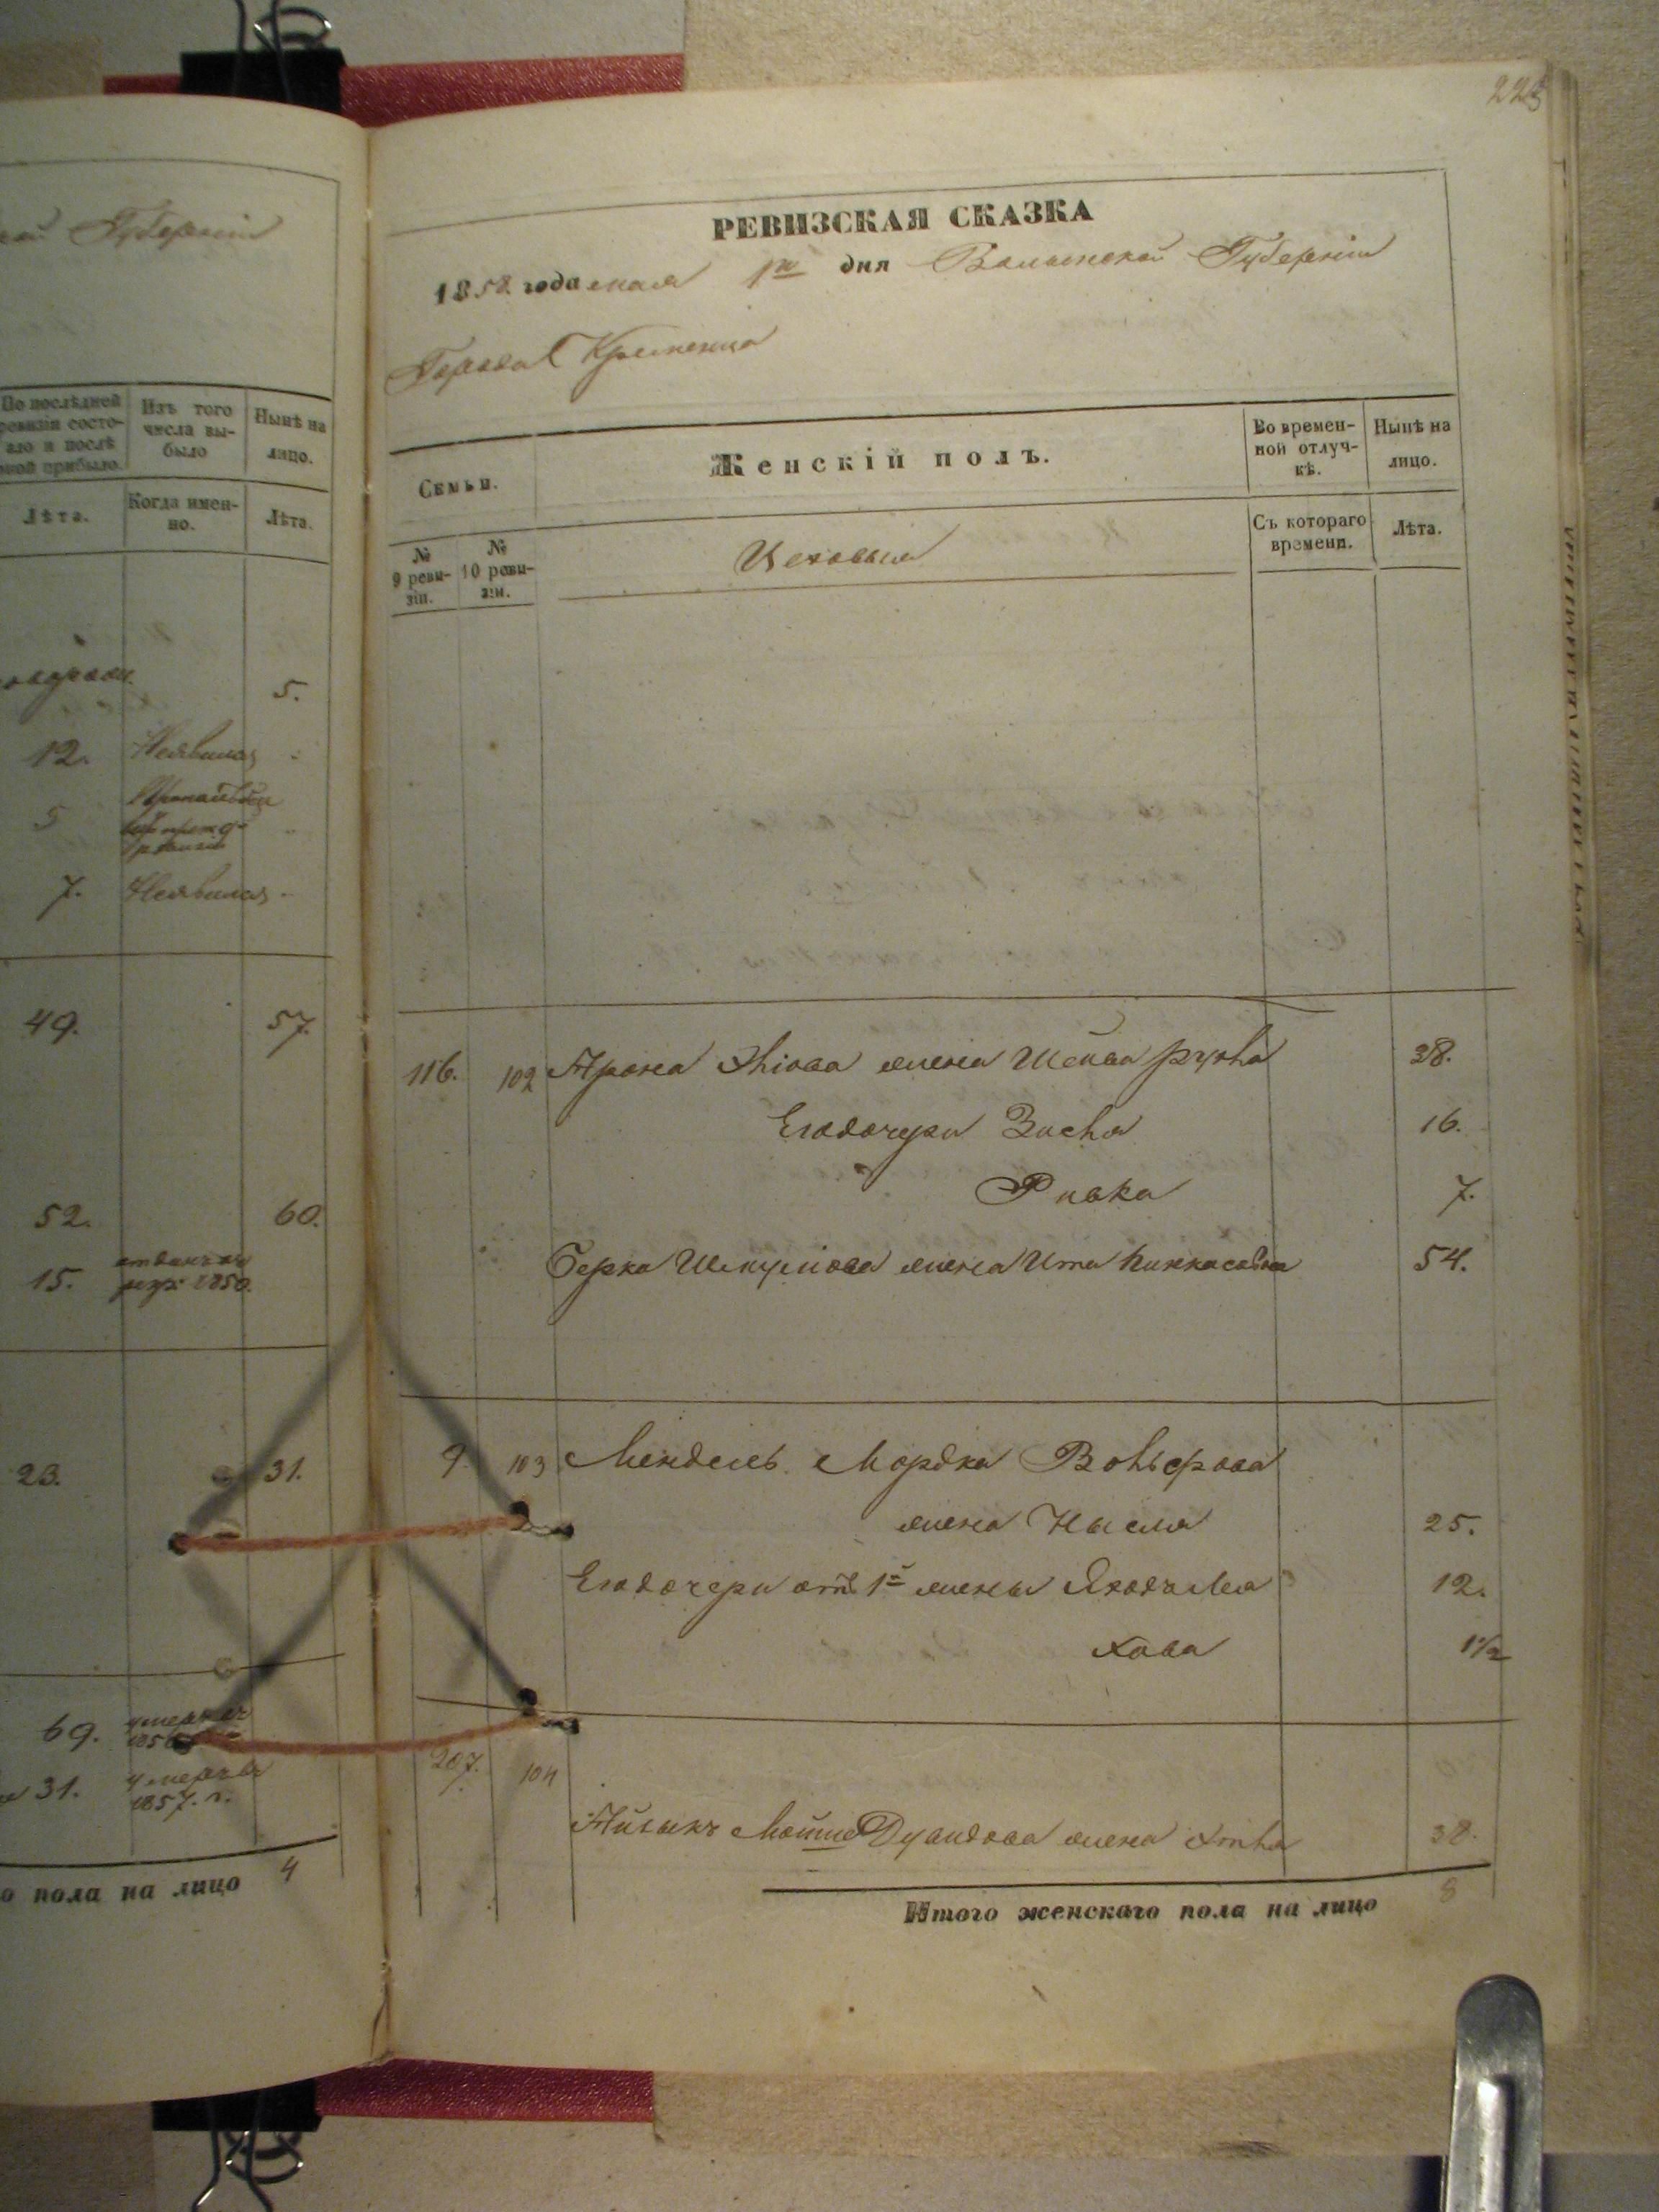 223
Губерніи
По послѣдней ревизіи состо-
яло и послѣ
оной прибыло.
Изъ того
числа вы-
было
Нынѣ на
лицо.
Лѣта.
Когда имен-
но.
Лѣта.
5.
12. Неявилась
5
7. Неявилась
49. 57.
52. 60.
15. 1850.
23. 31.
69. умерла
31. умерла
1857. г.
о пола на лицо 4
РЕВИЗСКАЯ СКАЗКА
1858 года мая 1го дня Волынской Губерніи
Города Кременца
Семьи.
Женскій полъ.
Во времен-
ной отлуч-
кѣ.
Нынѣ на
лицо.
№
9 реви-
зіи.
№
10 реви-
зіи.
Цеховыя
Съ котораго
времени.
Лѣта.
116. 102 Арона жена 38.
Его дочери Зисля 16.
Ривка 7.
Берка Шмулiова жена Ита Пинкасовна 54.
9. 103 Мендель Мордка Вольфова
жена Нысля 25.
Его дочери отъ 1й жены 12.
Хава 1½
207. 104
Айзыкъ Мошко жена 38.
Итого женскаго пола на лицо 8